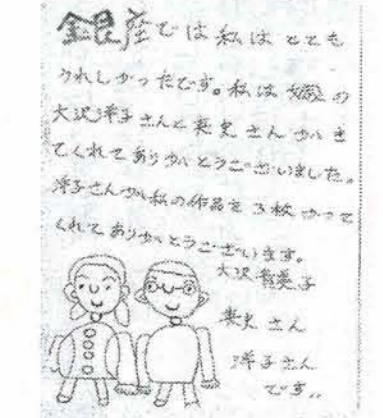 銀座では私はとても
うれしかったです。私は 姉の
大沢洋子さんと英史さんがき
てくれてありがとうございました。
洋子さんが私の作品を3枚かって
くれてありがとうございます。
大沢 美子
英史さん
洋子さん
です。